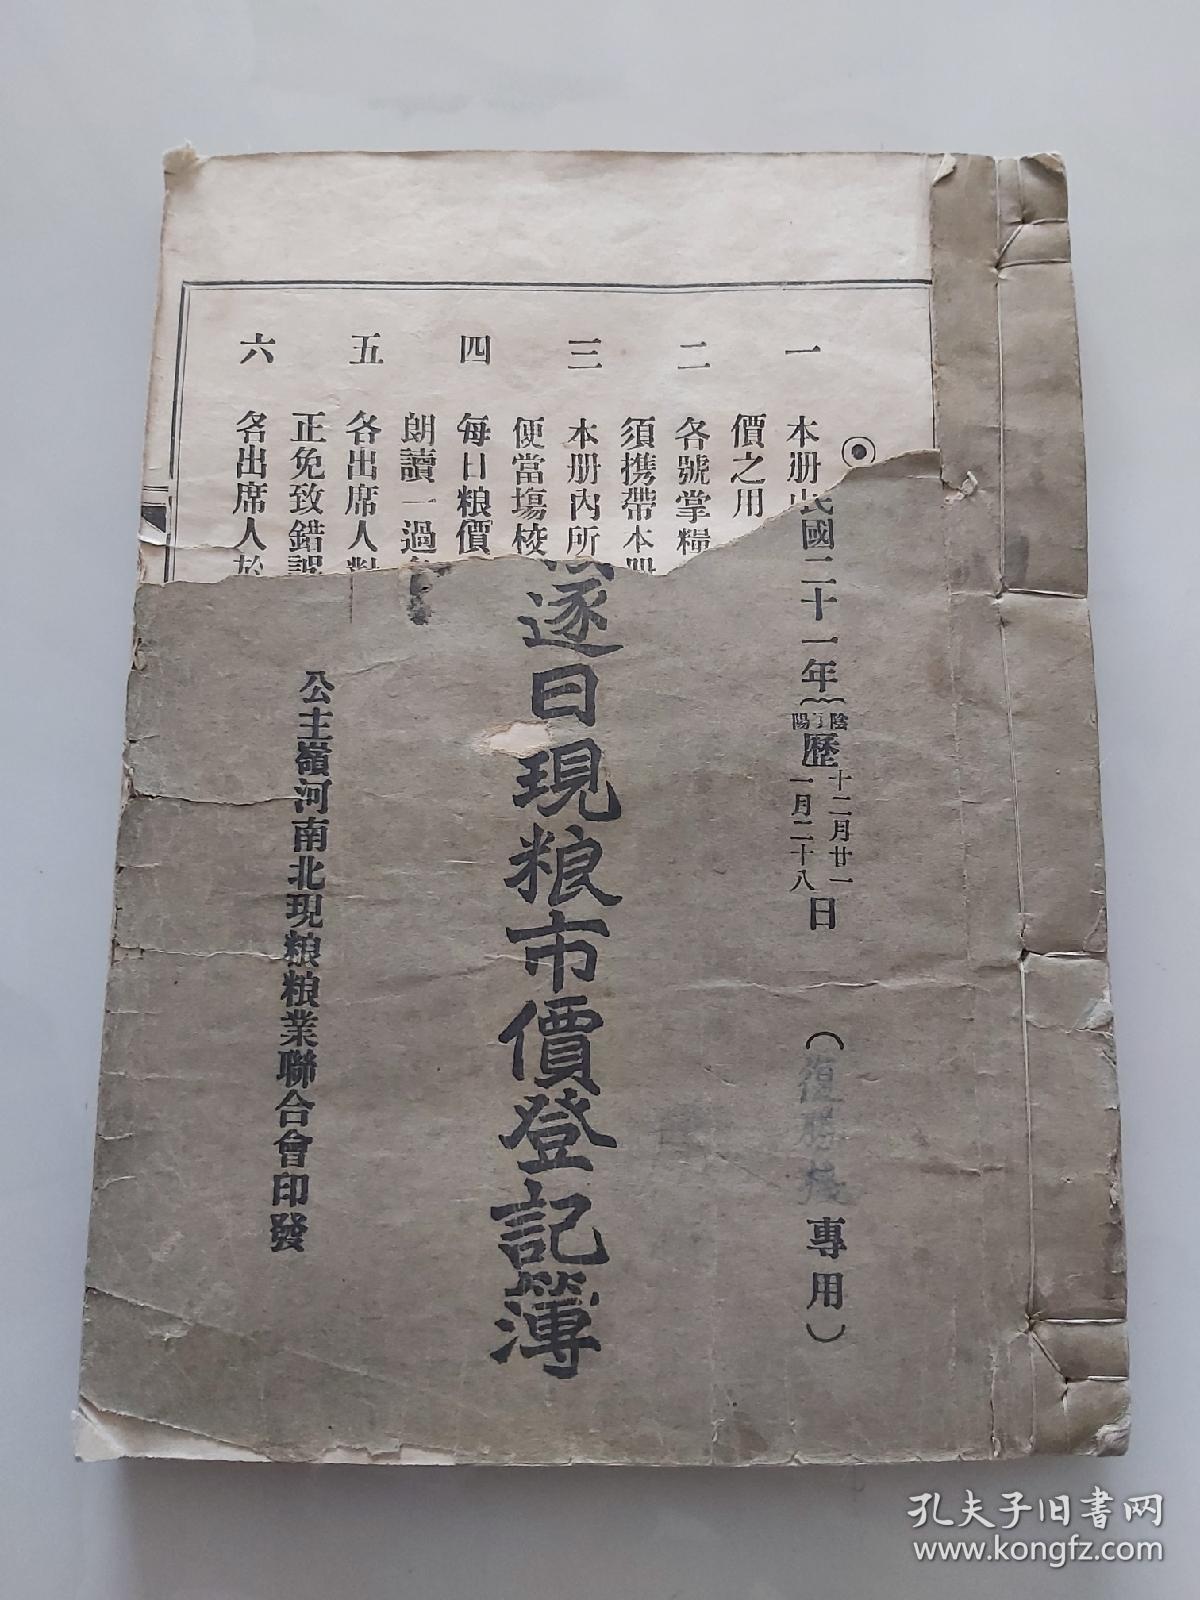 民國二十一年陰陽歷十二月廿一一月二十八日
（復勝棧專用）
遂日現粮市價登記簿
公主嶺河南北現粮粮業聯合會印發
一 本册
價之用
二 各號掌糧
須携帶本册
三 本册內所
便當塲校
四 每日粮價
朗讀一過
五 各出席人對
正免致錯誤
六 各出席人於
孔夫子旧书网
www.kongfz.com